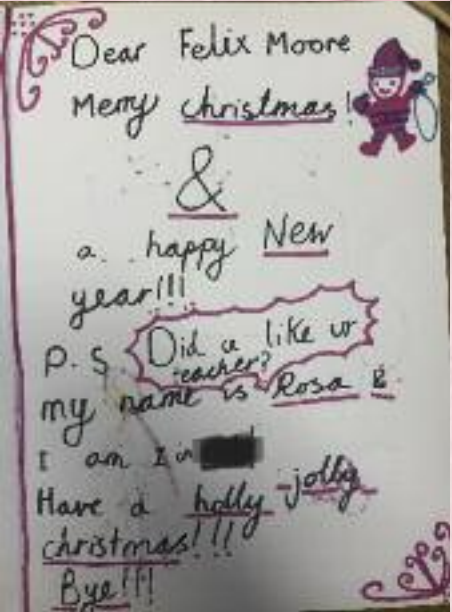 Dear Felix Moore
Merry christmas!
&
a happy New
year!!!
P.S Did u like ur
teacher?
my name is Rosa B
I am I in
Have a holly jolly
christmas!!!
Bye!!!